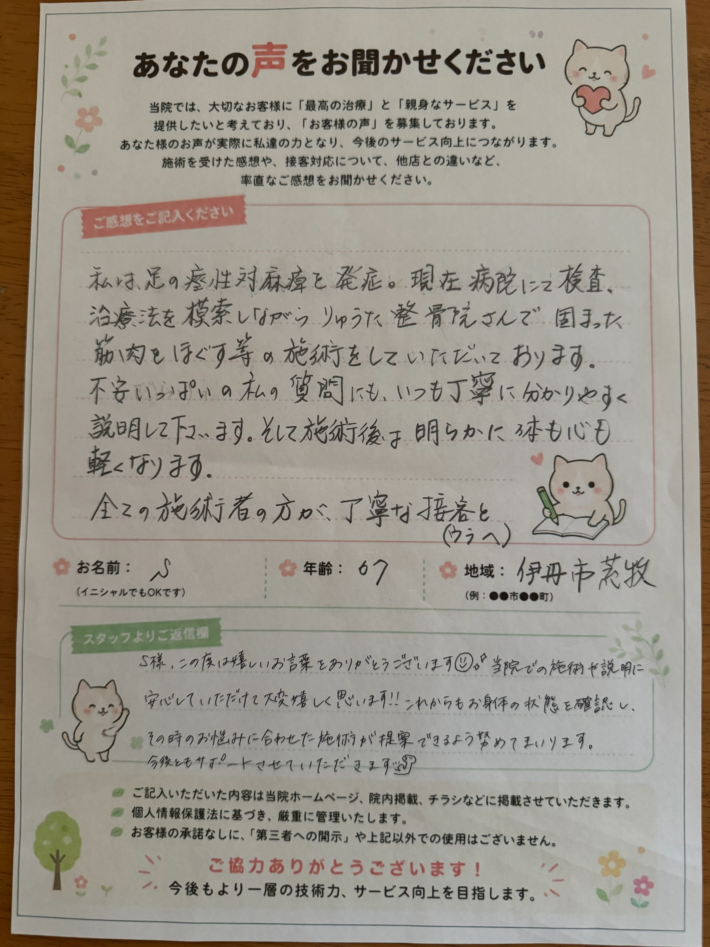 あなたの声をお聞かせください
当院では、大切なお客様に「最高の治療」と「親身なサービス」を
提供したいと考えており、「お客様の声」を募集しております。
あなた様のお声が実際に私達の力となり、今後のサービス向上につながります。
施術を受けた感想や、接客対応について、他店との違いなど、
率直なご感想をお聞かせください。
ご感想をご記入ください
私は、足の痙性対麻痺を発症。現在病院にて検査、
治療法を模索しながらりゅうた整骨院さんで固まった
筋肉をほぐす等の施術をしていただいております。
不安いっぱいの私の質問にも、いつも丁寧に分かりやすく
説明して下さいます。そして施術後は明らかに体も心も
軽くなります。
全ての施術者の方が、丁寧な接客と
(ウラへ)
お名前: S 年齢: 67 地域: 伊丹市荒牧
(イニシャルでもOKです) (例:●●市●●町)
スタッフよりご返信欄
S様、この度は嬉しいお言葉をありがとうございます。当院での施術や説明に
安心していただけて大変嬉しく思います!!これからもお身体の状態を確認し、
その時のお悩みに合わせた施術が提案できるよう努めてまいります。
今後ともサポートさせていただきます
ご記入いただいた内容は当院ホームページ、院内掲載、チラシなどに掲載させていただきます。
個人情報保護法に基づき、厳重に管理いたします。
お客様の承諾なしに、「第三者への開示」や上記以外での使用はございません。
ご協力ありがとうございます!
今後もより一層の技術力、サービス向上を目指します。